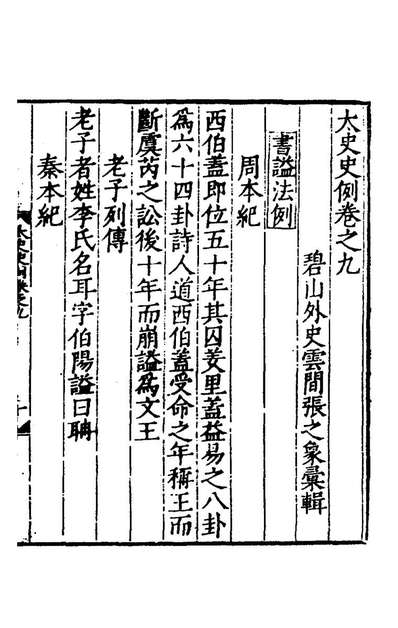 太史史例卷之九
碧山外史雲間張之象彙輯
書謚法例
周本紀
西伯蓋即位五十年其囚羑里蓋益易之八卦
爲六十四卦詩人道西伯蓋受命之年稱王而
斷虞芮之訟後十年而崩謚爲文王
老子列傳
老子者姓李氏名耳字伯陽謚曰聃
秦本紀